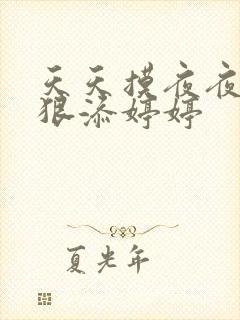 天天摸夜夜
狠添婷婷
夏光年